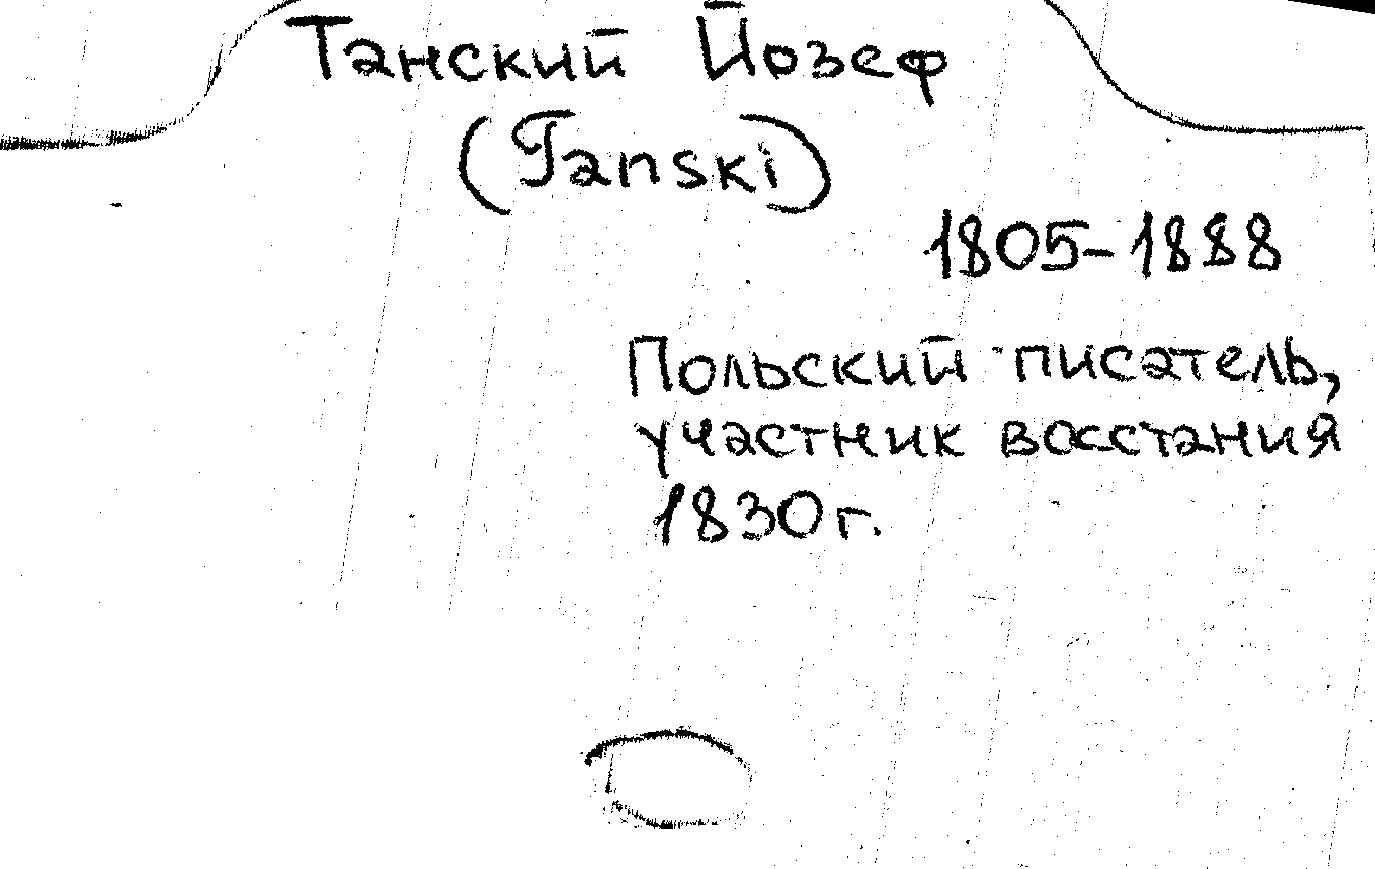 Танский Йозеф
(Tanski)
1805-1888
Польский писатель,
участник восстания
1830г.